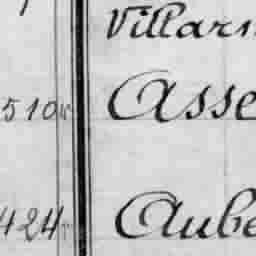 Villar
510 Asse
424 Aube